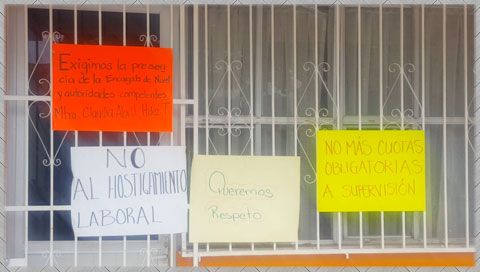 Exigimos la presen
cia de la Encargada de Nivel
y autoridades competentes.
Mtra. Claudia Abril Hdez T
NO
AL HOSTIGAMIENTO
LABORAL
Queremos
Respeto
NO MÁS CUOTAS
OBLIGATORIAS
A SUPERVISIÓN